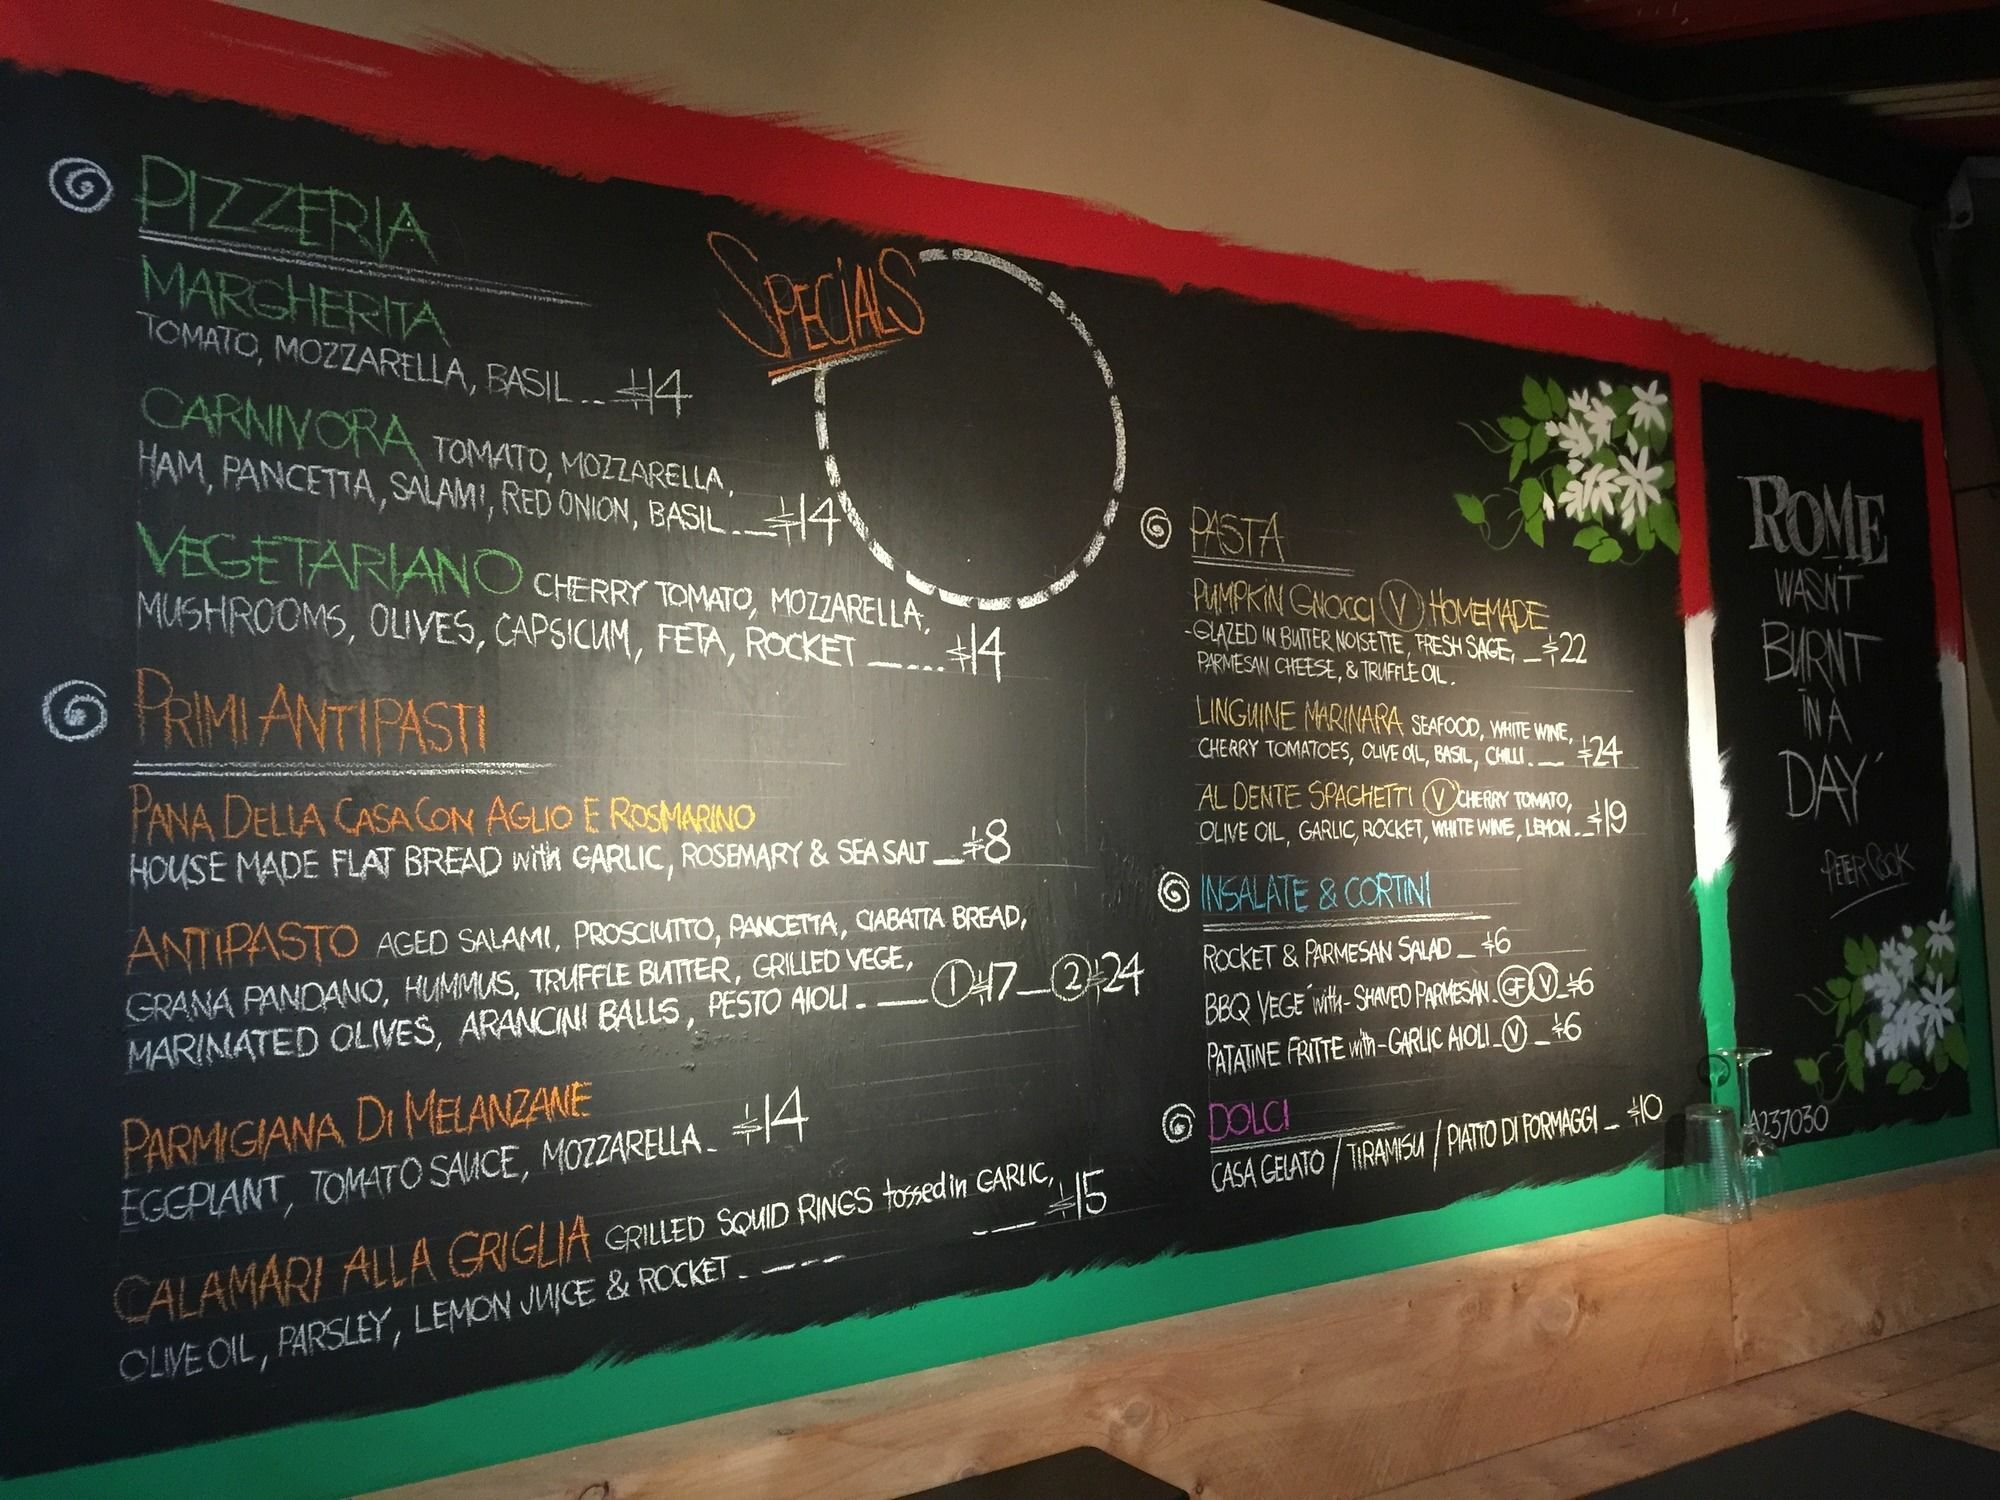 PIZZERIA
MARGHERITA
TOMATO, MOZZARELLA, BASIL... $14
CARNIVORA TOMATO, MOZZARELLA,
HAM, PANCETTA, SALAMI, RED ONION, BASIL.__$14
VEGETARIANO CHERRY TOMATO, MOZZARELLA,
MUSHROOMS, OLIVES, CAPSICUM, FETA, ROCKET __...$14
PRIMI ANTIPASTI
PANA DELLA CASA CON AGLIO E ROSMARINO
HOUSE MADE FLAT BREAD with GARLIC, ROSEMARY & SEA SALT __$8
ANTIPASTO AGED SALAMI, PROSCIUTTO, PANCETTA, CIABATTA BREAD,
GRANA PANDANO, HUMMUS, TRUFFLE BUTTER, GRILLED VEGE,
MARINATED OLIVES, ARANCINI BALLS, PESTO AIOLI.__ 1 $17_2 $24
PARMIGIANA DI MELANZANE
EGGPLANT, TOMATO SAUCE, MOZZARELLA_ $14
CALAMARI ALLA GRIGLIA GRILLED SQUID RINGS tossed in GARLIC,
OLIVE OIL, PARSLEY, LEMON JUICE & ROCKET.____ $15
SPECIALS
PASTA
PUMPKIN GNOCCI V HOMEMADE
-GLAZED IN BUTTER NOISETTE, FRESH SAGE, _$22
PARMESAN CHEESE, & TRUFFLE OIL.
LINGUINE MARINARA SEAFOOD, WHITE WINE,
CHERRY TOMATOES, OLIVE OIL, BASIL, CHILLI.__ $24
AL DENTE SPAGHETTI V CHERRY TOMATO,
OLIVE OIL, GARLIC, ROCKET, WHITE WINE, LEMON._$19
INSALATE & CORTINI
ROCKET & PARMESAN SALAD _ $6
BBQ VEGE with- SHAVED PARMESAN. GF V _$6
PATATINE FRITTE with-GARLIC AIOLI_V _ $6
DOLCI
CASA GELATO / TIRAMISU / PIATTO DI FORMAGGI _ $10
ROME
WASN'T
BURNT
IN A
DAY'
PETER COOK
A237030